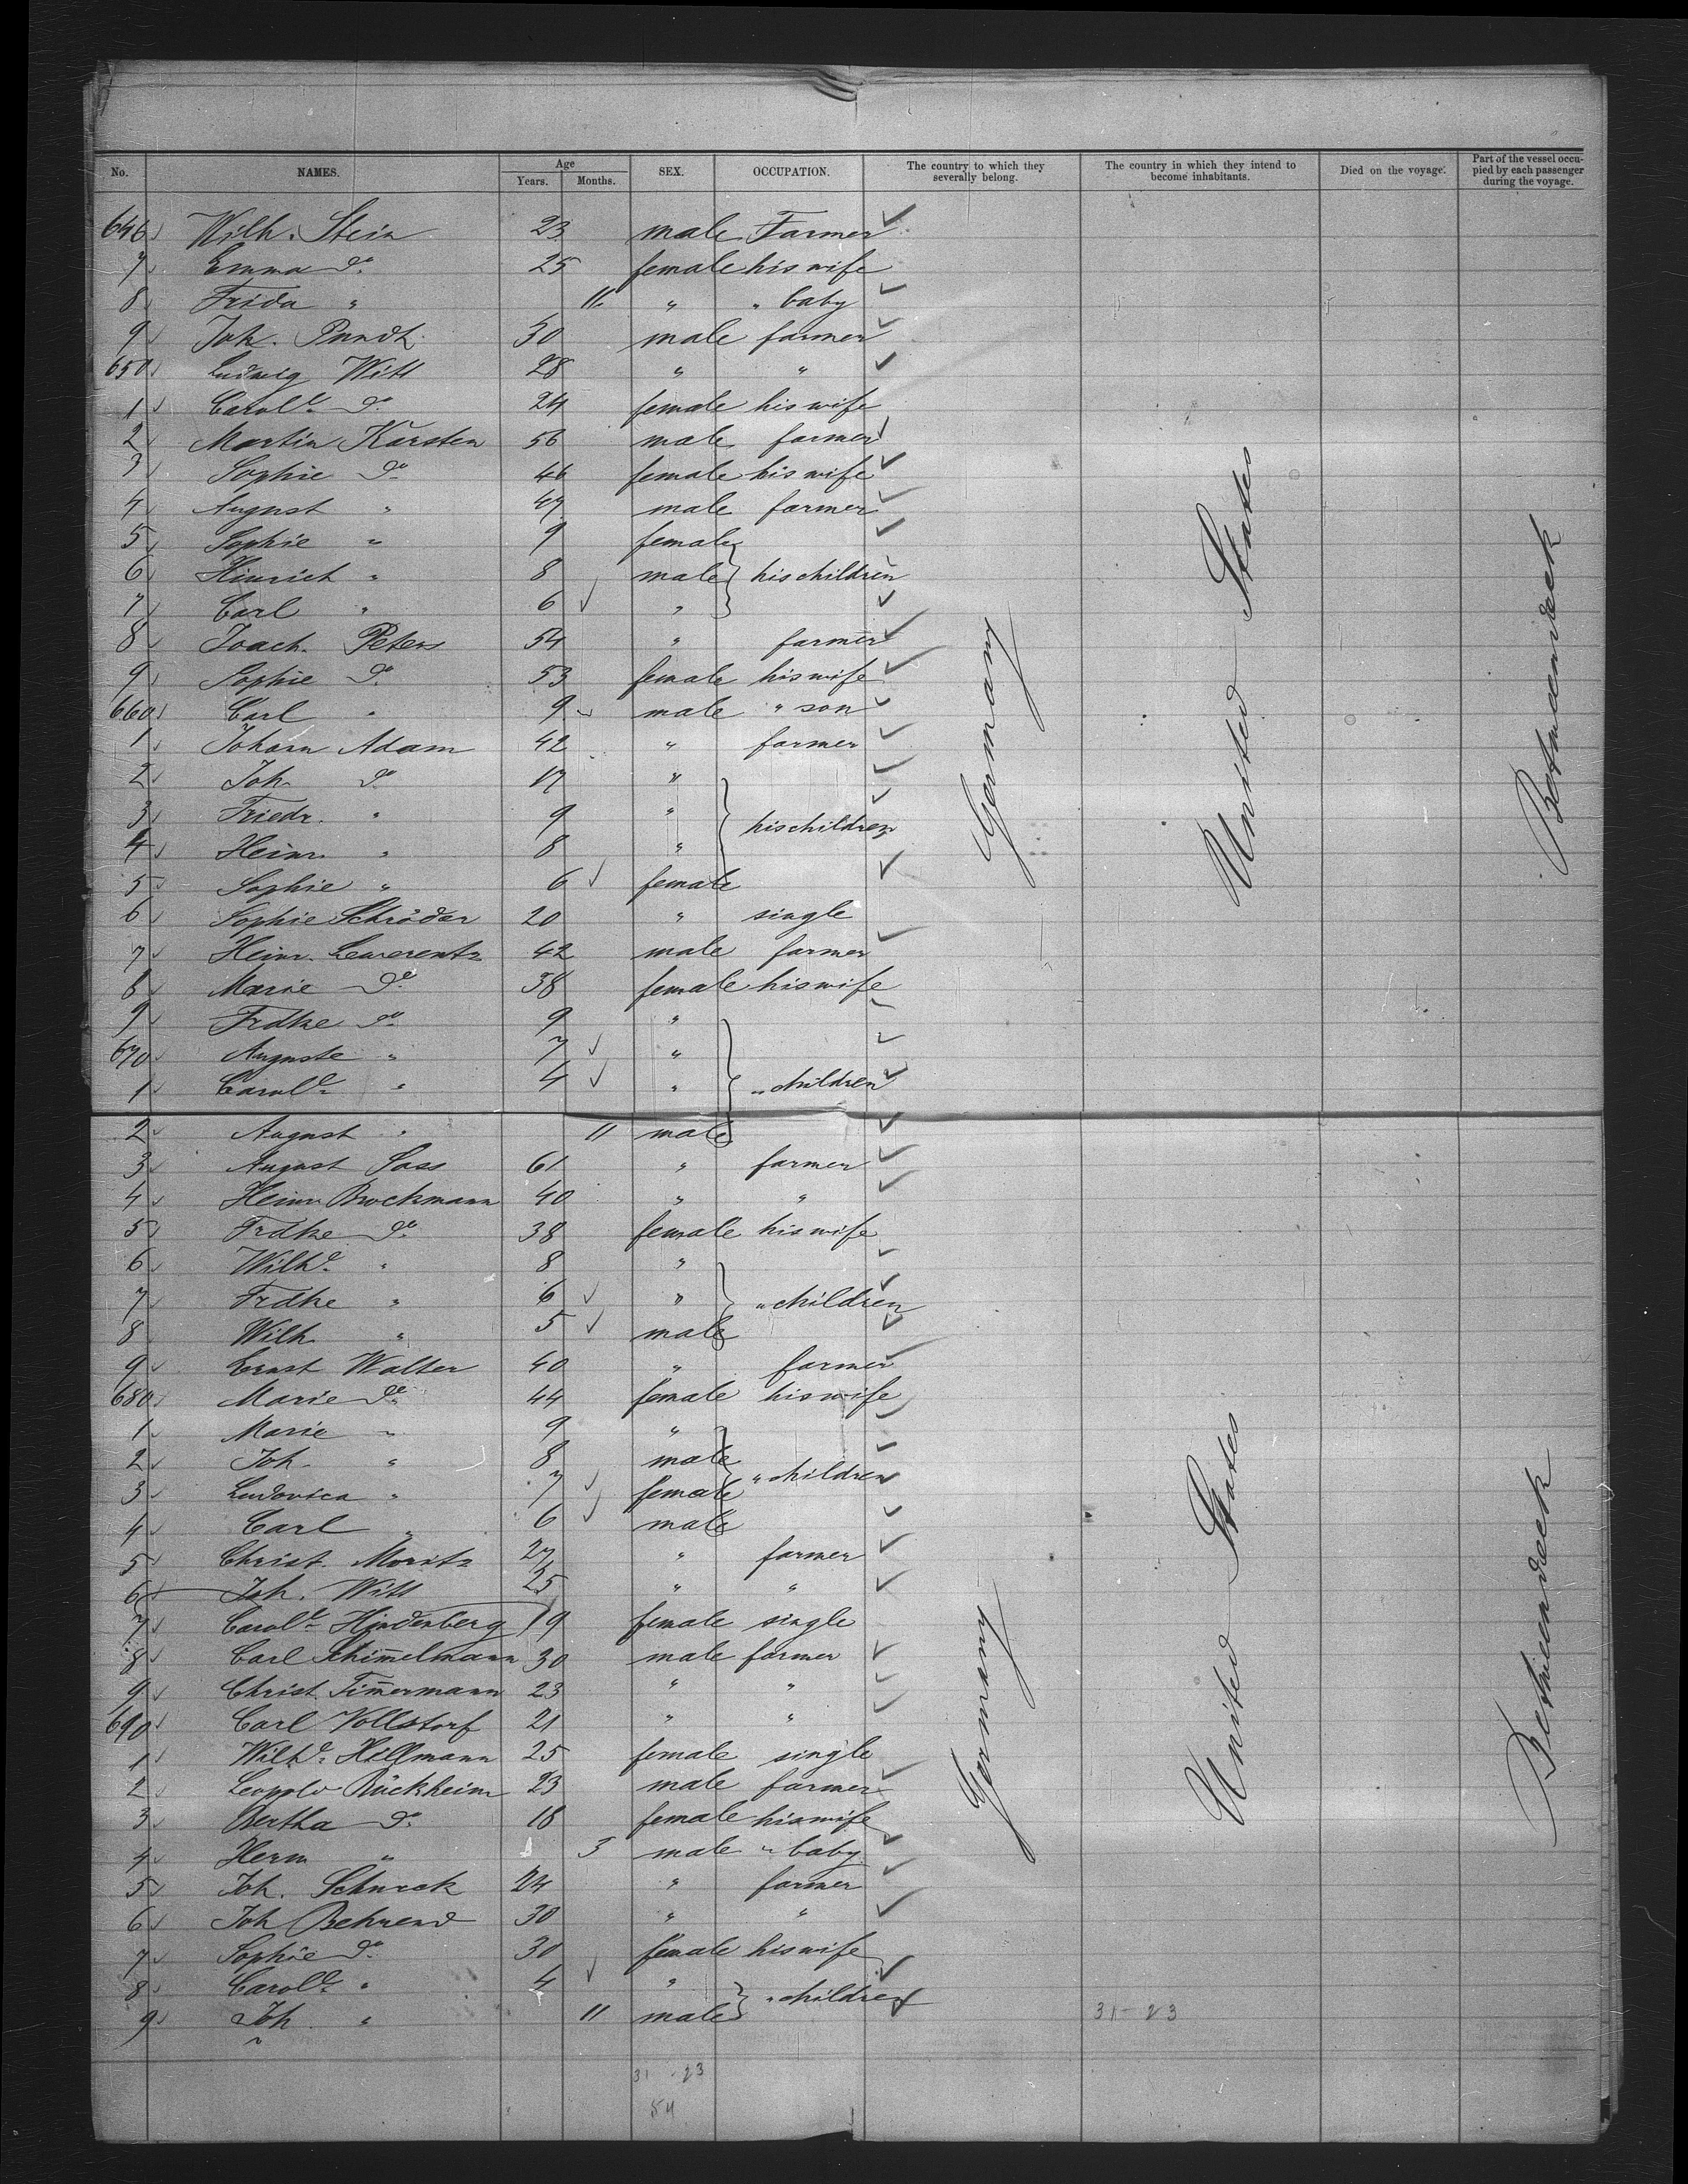 No. NAMES. Age Years. Months. SEX. OCCUPATION. The country to which they severally belong. The country in which they intend to become inhabitants. Died on the voyage. Part of the vessel occupied by each passenger during the voyage.
646 Wilh. Stein 23 male Farmer
7 Emma do 25 female his wife
8 Frida " 11 " " baby
9 Joh. Pundt 30 male farmer
650 Ludwig Witt 28 " "
1 Carole do 24 female his wife
2 Martin Karsten 56 male farmer
3 Sophie do 46 female his wife
4 August " 47 male farmer
5 Sophie " 9 female
6 Hinrich " 8 male his children
7 Carl " 6 "
8 Joach. Peters 54 " farmer
9 Sophie do 53 female his wife
660 Carl " 9 male " son
1 Johann Adam 42 " farmer
2 Joh. do 17 "
3 Friedr. " 9 " his children
4 Heinr. " 8 "
5 Sophie " 6 female
6 Sophie Schröder 20 " single
7 Heinr. Laverentz 42 male farmer
8 Marie do 38 female his wife
9 Frdke do 9 "
670 Auguste " 7 "
1 Carole " 4 " " children
2 August " 11 male
3 August Sass 61 " farmer
4 Heinr. Brockmann 40 " "
5 Frdke do 38 female his wife
6 Wilhe " 8 "
7 Frdke " 6 " " children
8 Wilh. " 5 male
9 Ernst Walter 40 " farmer
680 Marie do 44 female his wife
1 Marie " 9 "
2 Joh. " 8 male " children
3 Ludovica " 7 female
4 Carl " 6 male
5 Christ. Moritz 27 " farmer
6 Joh. Witt 25 " "
7 Carole Hindenberg 19 female single
8 Carl Schim̄elmann 30 male farmer
9 Christ. Tim̄ermann 23 " "
690 Carl Vollstorf 21 " "
1 Wilhe Hillmann 25 female single
2 Leopold Rückheim 23 male farmer
3 Bertha do 18 female his wife
4 Herm " 3 male " baby
5 Joh. Schurck 24 " farmer
6 Joh Behrend 30 " "
7 Sophie do 30 female his wife
8 Carole " 4 " " children
9 Joh. " 11 male
Germany
United States
Betweendeck
Germany
United States
Betweendeck
31-23
31 23
54